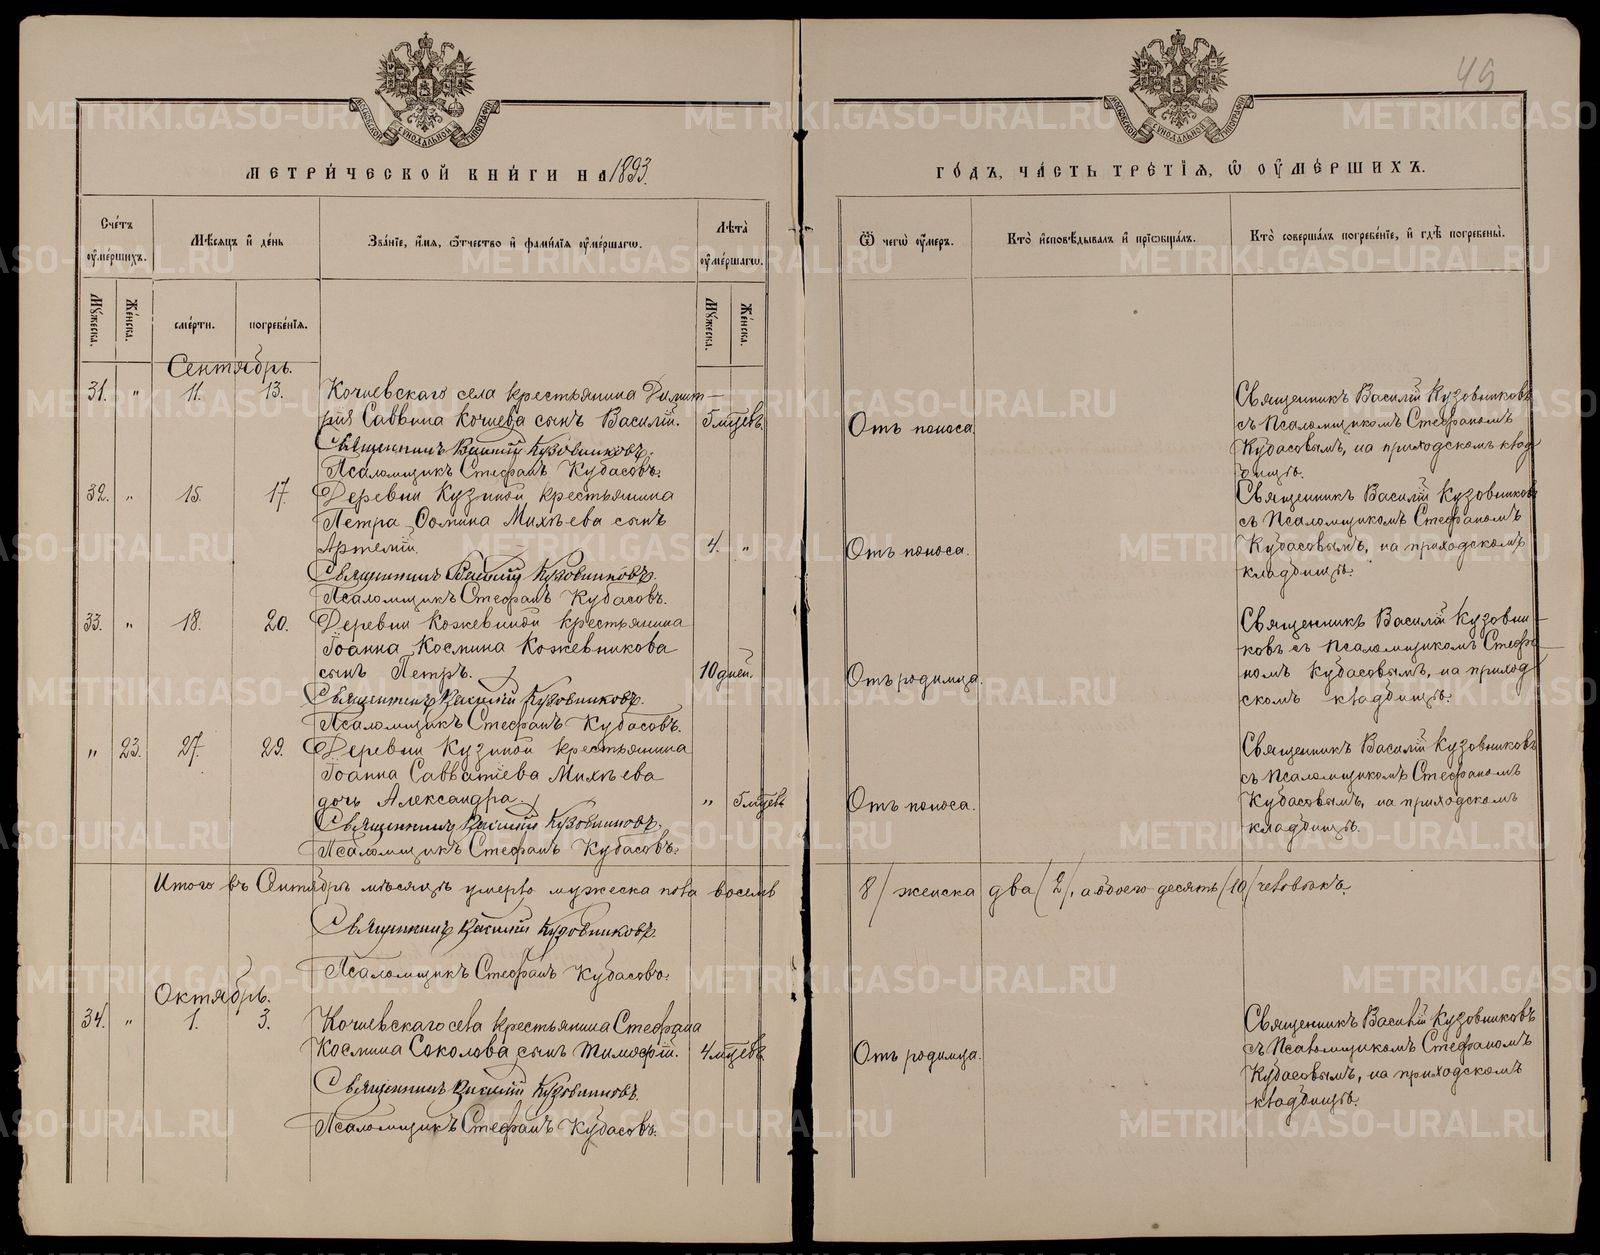 49
МОСКОВСКОЙ СѴНОДАЛЬНОЙ ТИПОГРАФІИ
МОСКОВСКОЙ СѴНОДАЛЬНОЙ ТИПОГРАФІИ
МЕТРИ́ЧЕСКОЙ КНИ́ГИ НА 1893.
ГО́ДЪ, ЧА́СТЬ ТРЕ́ТІѦ, Ѡ҆ ОУ҆МЕ́РШИХЪ.
Сче́тъ оу҆ме́ршихъ.
Мѣ́сѧцъ и҆ де́нь
Зва́нїе, и҆́мѧ, ѻ҆́тчество и҆ фами́лїѧ оу҆ме́ршагѡ.
Лѣ́та оу҆ме́ршагѡ.
Ѿ чегѡ̀ оу҆́меръ.
Кто̀ и҆сповѣ́дывалъ и҆ прїѡбща́лъ.
Кто̀ соверша́лъ погребе́нїе, и҆ гдѣ̀ погребены̀.
Мꙋ́жеска.
Же́нска.
сме́рти.
погребе́нїѧ.
Мꙋ́жеска.
Же́нска.
Сентябрь.
31. " 11. 13. Кочневскаго села крестьянина Димит-
рія Саввина Кочнева сынъ Василій. 5 мцевъ
Священникъ Василій Кузовниковъ.
Псаломщикъ Стефанъ Кубасовъ.
Отъ поноса.
Священникъ Василій Кузовниковъ
съ Псаломщикомъ Стефаномъ
Кубасовымъ, на приходскомъ клад-
бищѣ.
32. " 15. 17. Деревни Кузиной крестьянина
Петра Ѳомина Михѣева сынъ
Артемій. 4. "
Священникъ Василій Кузовниковъ.
Псаломщикъ Стефанъ Кубасовъ.
Отъ поноса.
Священникъ Василій Кузовниковъ
съ Псаломщикомъ Стефаномъ
Кубасовымъ, на приходскомъ
кладбищѣ.
33. " 18. 20. Деревни Кожевиной крестьянина
Іоанна Космина Кожевникова
сынъ Петръ. 10 дней.
Священникъ Василій Кузовниковъ.
Псаломщикъ Стефанъ Кубасовъ.
Отъ родимца.
Священникъ Василій Кузовни-
ковъ съ Псаломщикомъ Стефа-
номъ Кубасовымъ, на приход-
скомъ кладбищѣ.
" 23. 27. 29. Деревни Кузиной крестьянина
Іоанна Савватіева Михѣева
дочь Александра. " 5 мцевъ
Священникъ Василій Кузовниковъ.
Псаломщикъ Стефанъ Кубасовъ.
Отъ поноса.
Священникъ Василій Кузовниковъ
съ Псаломщикомъ Стефаномъ
Кубасовымъ, на приходскомъ
кладбищѣ.
Итого въ Сентябрѣ мѣсяцѣ умерло мужеска пола восемь /8/ женска два /2/, а обоего десять /10/ человѣкъ.
Священникъ Василій Кузовниковъ.
Псаломщикъ Стефанъ Кубасовъ.
Октябрь.
34. " 1. 3. Кочневскаго села крестьянина Стефана
Космина Соколова сынъ Тимофій. 4 мцевъ
Священникъ Василій Кузовниковъ.
Псаломщикъ Стефанъ Кубасовъ.
Отъ родимца.
Священникъ Василій Кузовниковъ
съ Псаломщикомъ Стефаномъ
Кубасовымъ, на приходскомъ
кладбищѣ.
METRIKI.GASO-URAL.RU